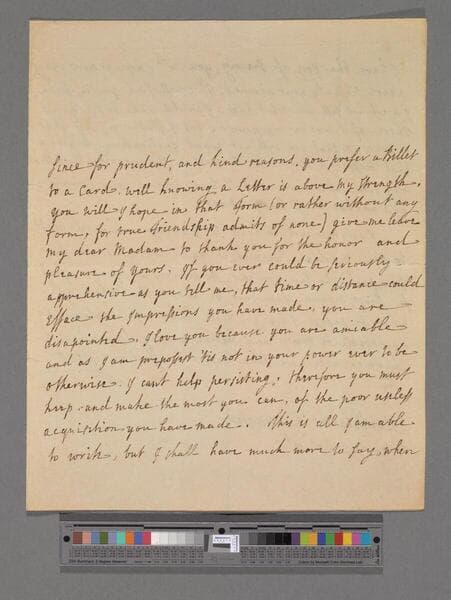 Since for prudent, and kind reasons, you prefer a Billet
to a Card. well knowing a Letter is above my strength,
you will I hope in that form (or rather without any
form, for true friendship admits of none) give me leave
my dear Madam to thank you for the honor and
pleasure of yours. If you ever could be seriously
apprehensive as you tell me, that time or distance could
Efface the Impressions you have made, you are
disapointed, I love you because you are amiable
and as I am prepossest tis not in your power ever to be
otherwise. I cant help persisting, therefore you must
keep and make the most you can, of the poor useless
acquisition you have made. This is all I am able
to write, but I shall have much more to say, when